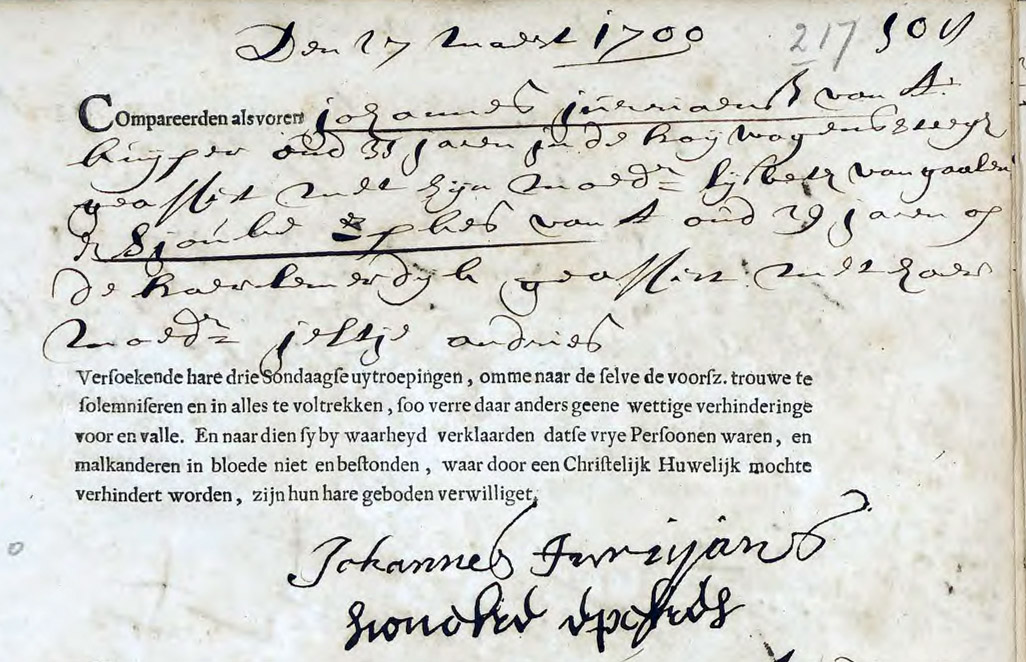 Den 17 Maert 1700 217
Compareerden als voren Johannes Jurriaens van A.
kuyper oud 31 jaren in de hoywagensteegh
geassist met zijn moedr lijsbeth van gaalen
& Sjouke van A oud 29 jaren op
de haerlemerdijk geassist met haer
moedr jeltje andries
Versoekende hare drie Sondaagse uytroepingen, omme naar de selve de voorsz. trouwe te
solemniseren en in alles te voltrekken, soo verre daar anders geene wettige verhinderinge
voor en valle. En naar dien sy by waarheyd verklaarden datse vrye Persoonen waren, en
malkanderen in bloede niet en bestonden, waar door een Christelijk Huwelijk mochte
verhindert worden, zijn hun hare geboden verwilliget.
Johannes Jurrijans